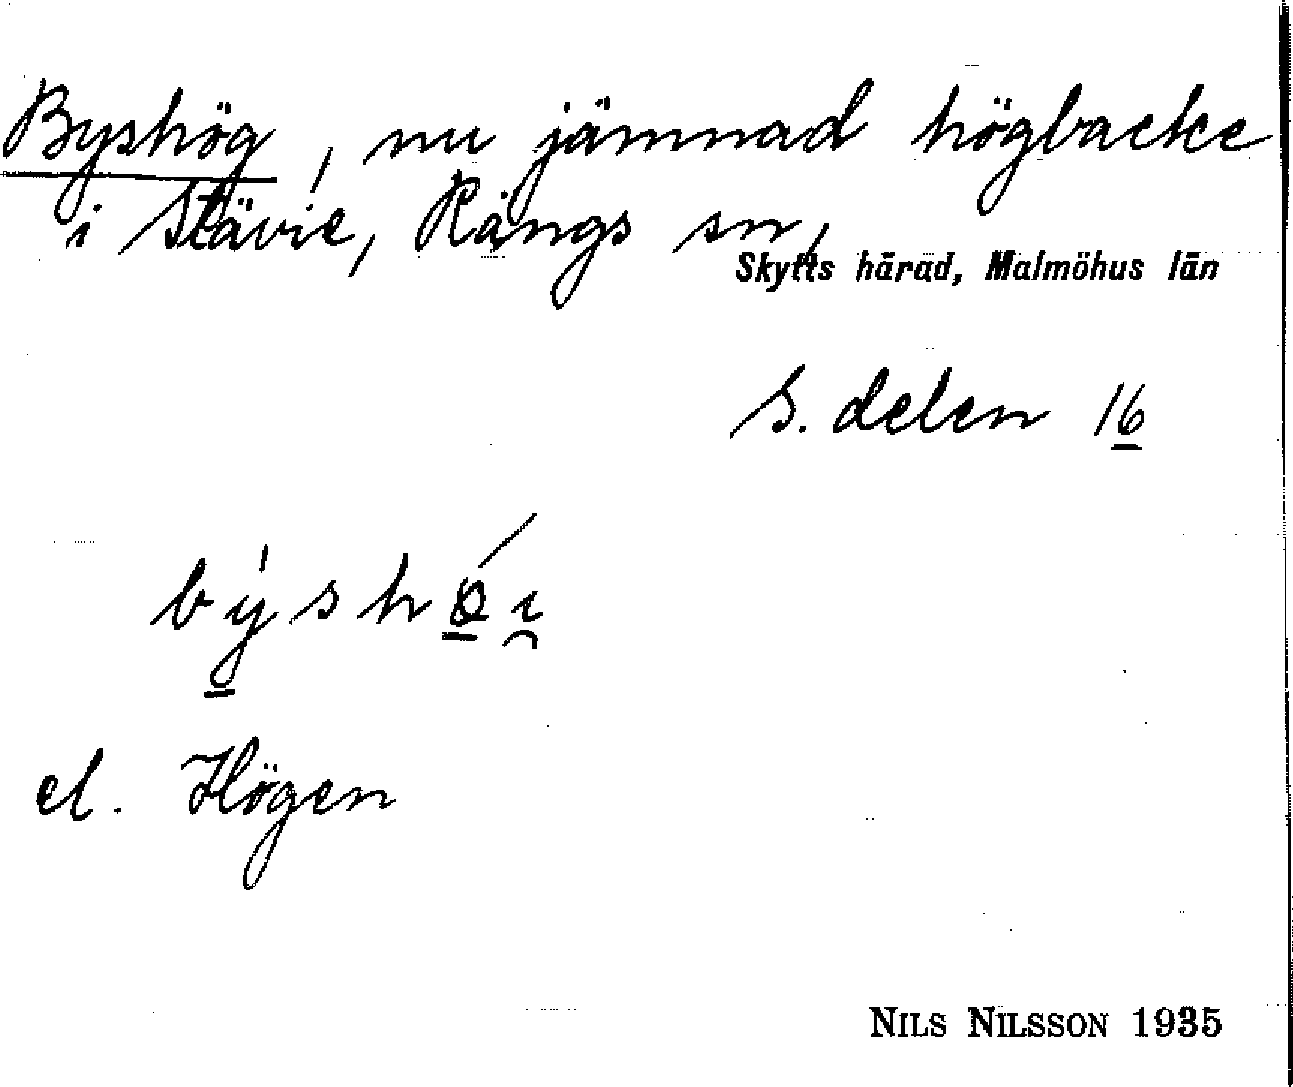 Byshög, nu jämnad högbacke
i Stävie, Rängs sn,
Skytts härad, Malmöhus län
S. delen 16
býshǿi̯
el. Högen
NILS NILSSON 1935